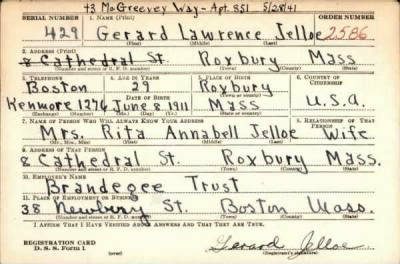 43 McGreevey Way - Apt. 851 5/28/41
SERIAL NUMBER 1. NAME (Print) ORDER NUMBER
429 Gerard Lawrence Jelloe 2586
(First) (Middle) (Last)
2. ADDRESS (Print)
8 Cathedral St. Roxbury Mass
(Number and street or R. F. D. number) (Town) (County) (State)
3. TELEPHONE 4. AGE IN YEARS 5. PLACE OF BIRTH 6. COUNTRY OF CITIZENSHIP
Boston 29 Roxbury
DATE OF BIRTH (Town or county)
Kenmore 1276 June 8, 1911 Mass U.S.A.
(Exchange) (Number) (Mo.) (Day) (Yr.) (State or country)
7. NAME OF PERSON WHO WILL ALWAYS KNOW YOUR ADDRESS 8. RELATIONSHIP OF THAT PERSON
Mrs. Rita Annabell Jelloe Wife
(Mr., Mrs., Miss) (First) (Middle) (Last)
9. ADDRESS OF THAT PERSON
8 Cathedral St. Roxbury Mass.
(Number and street or R. F. D. number) (Town) (County) (State)
10. EMPLOYER'S NAME
Brandegee Trust
11. PLACE OF EMPLOYMENT OR BUSINESS
38 Newbury St. Boston Mass.
(Number and street or R. F. D. number) (Town) (County) (State)
I AFFIRM THAT I HAVE VERIFIED ABOVE ANSWERS AND THAT THEY ARE TRUE.
REGISTRATION CARD
D. S. S. Form 1 Gerard Jelloe
(Registrant's signature)